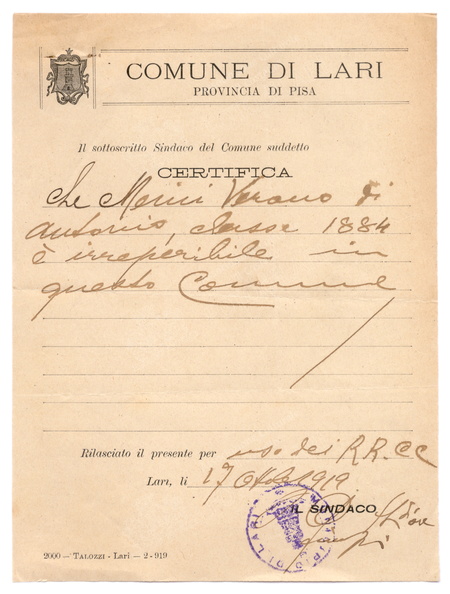 COMUNE DI LARI
PROVINCIA DI PISA
Il sottoscritto Sindaco del Comune suddetto
CERTIFICA
che Menii Verano di
Antonio, classe 1884
è irreperibile in
questo Comune
Rilasciato il presente per uso dei R.R. C C
Lari, li 17 Ottobr 1919
IL SINDACO
MUNICIPIO DI LARI
2000 — TALOZZI - Lari — 2 - 919